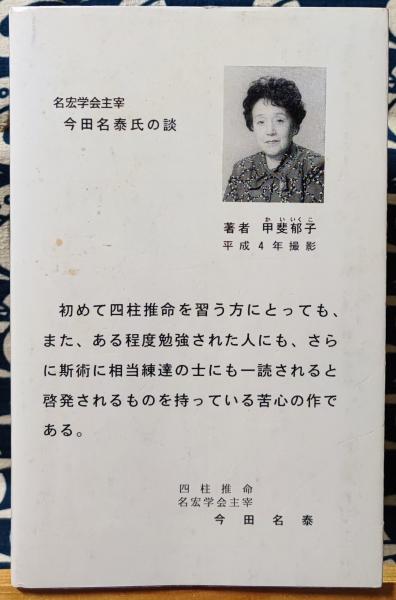 名宏学会主宰
今田名泰氏の談
かいいくこ
著者 甲斐郁子
平成4年撮影
初めて四柱推命を習う方にとっても、
また、ある程度勉強された人にも、さら
に斯術に相当練達の士にも一読されると
啓発されるものを持っている苦心の作で
ある。
四柱推命
名宏学会主宰
今田名泰